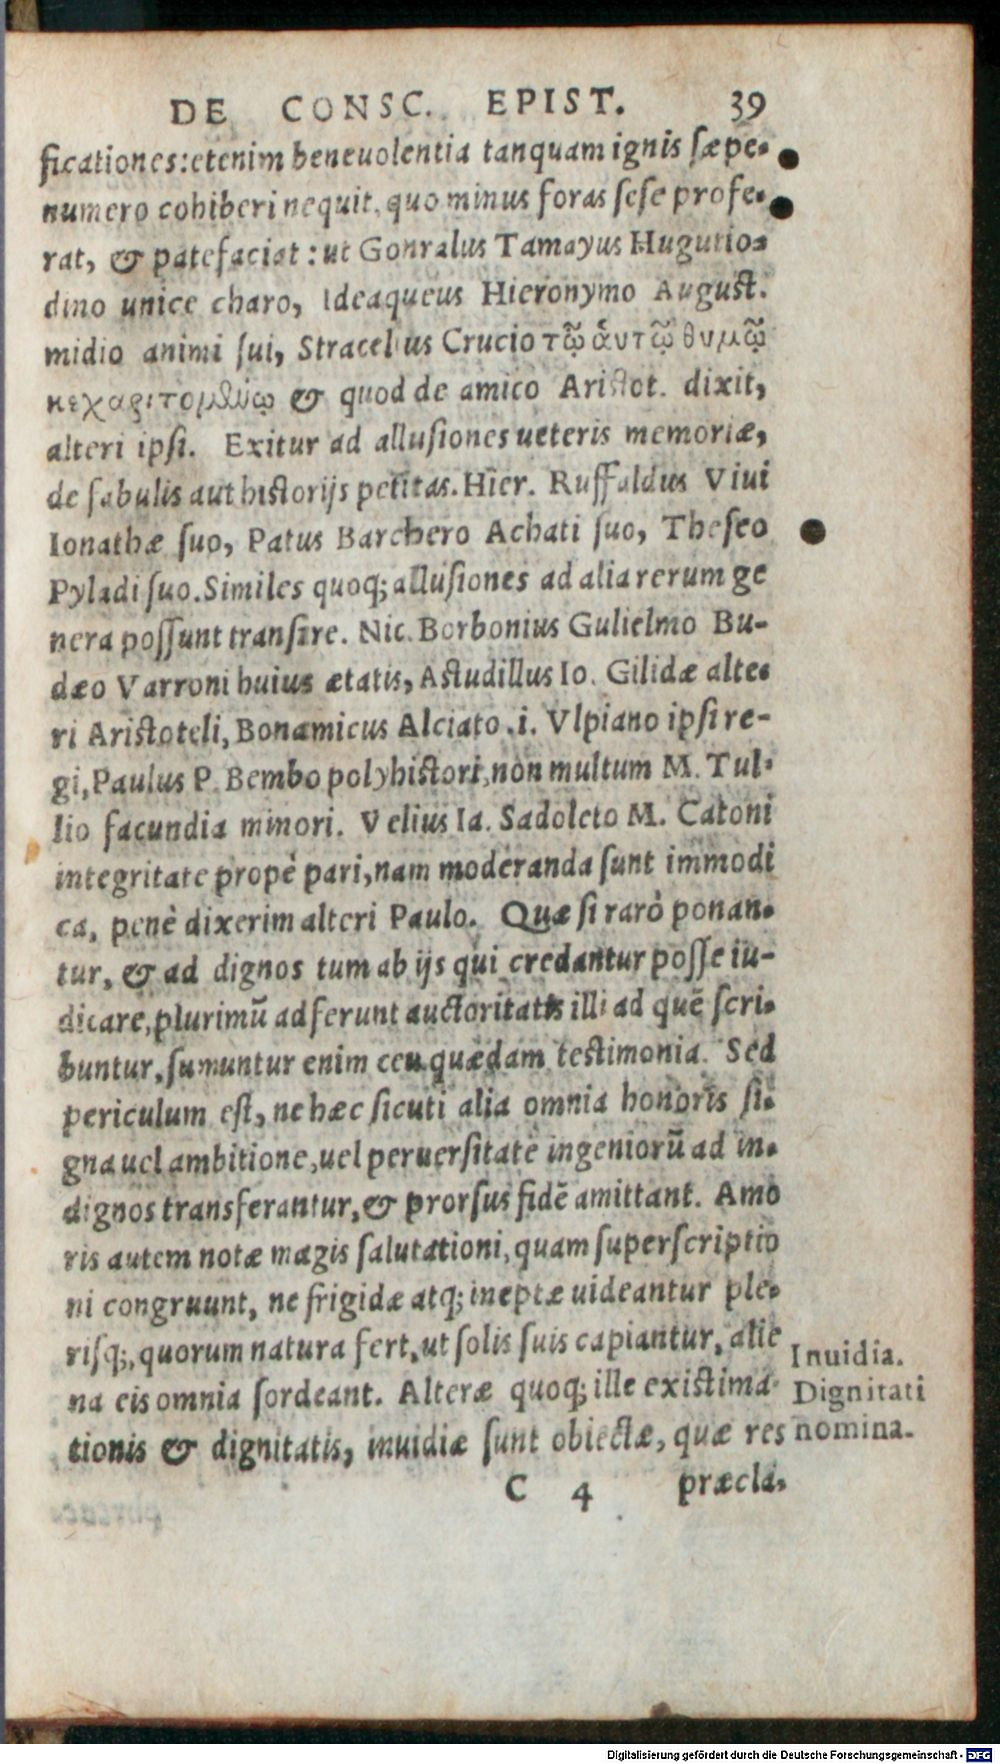 DE CONSC. EPIST. 39
ficationes: etenim beneuolentia tanquam ignis sæpe-
numero cohiberi nequit, quo minus foras sese profe-
rat, & patefaciat: ut Gonralus Tamayus Hugutio-
dino unice charo, Ideaqueus Hieronymo August.
midio animi sui, Stracelius Crucio τῷ ἁυτῷ θυμῷ
& quod de amico Aristot. dixit,
alteri ipsi. Exitur ad allusiones ueteris memoriæ,
de fabulis aut historijs petitas. Hier. Ruffaldus Viui
Ionathæ suo, Patus Barchero Achati suo, Theseo
Pyladi suo. Similes quoq; allusiones ad alia rerum ge
nera possunt transire. Nic. Borbonius Gulielmo Bu-
dæo Varroni huius ætatis, Astudillus Io. Gilidæ alte-
ri Aristoteli, Bonamicus Alciato .i. Vlpiano ipsi re-
gi, Paulus P. Bembo polyhistori, non multum M. Tul-
lio facundia minori. Velius Ia. Sadoleto M. Catoni
integritate propè pari, nam moderanda sunt immodi
ca, penè dixerim alteri Paulo. Quæ si rarò ponan-
tur, & ad dignos tum ab ijs qui credantur posse iu-
dicare, plurimũ adferunt auctoritatis illi ad quẽ scri-
buntur, sumuntur enim ceu quædam testimonia. Sed
periculum est, ne hæc sicuti alia omnia honoris si-
gna uel ambitione, uel peruersitate ingeniorũ ad in-
dignos transferantur, & prorsus fidẽ amittant. Amo
ris autem notæ magis salutationi, quam superscriptio
ni congruunt, ne frigidæ atq; ineptæ uideantur ple-
risq;, quorum natura fert, ut solis suis capiantur, alie
na eis omnia sordeant. Alteræ quoq; ille existima-
tionis & dignitatis, inuidiæ sunt obiectæ, quæ res
Inuidia.
Dignitati
nomina.
C 4 præcla-
Digitalisierung gefördert durch die Deutsche Forschungsgemeinschaft - DFG